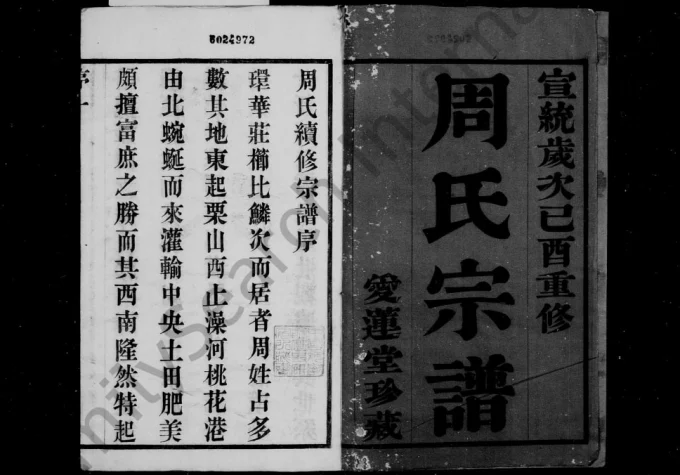 宣統歲次己酉重修
周氏宗譜
愛蓮堂珍藏
6024972
周氏續修宗譜序
環華莊櫛比鱗次而居者周姓占多
數其地東起栗山西止澡河桃花港
由北蜿蜒而來灌輸中央土田肥美
頗擅富庶之勝而其西南隆然特起
序一